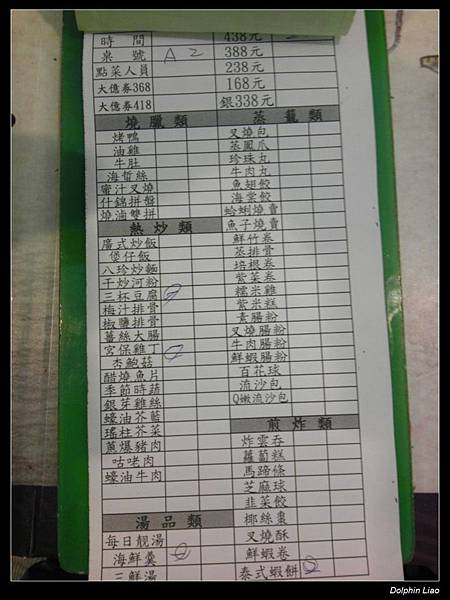 時間 438元
桌號 A2 388元
點菜人員 238元
大億券368 168元
大億券418 銀338元
燒臘類 蒸籠類
烤鴨 叉燒包
油雞 蒸鳳爪
牛肚 珍珠丸
海蜇絲 牛肉丸
蜜汁叉燒 魚翅餃
什錦拼盤 海棠餃
燒滷雙拼 蛤蜊燒賣
熱炒類 魚子燒賣
廣式炒飯 鮮竹卷
煲仔飯 蒸排骨
八珍炒麵 培根卷
干炒河粉 紫菜卷
三杯豆腐 糯米雞
梅汁排骨 紫米糕
椒鹽排骨 素腸粉
薑絲大腸 叉燒腸粉
宮保雞丁 牛肉腸粉
杏鮑菇 鮮蝦腸粉
醋燒魚片 百花球
季節時蔬 流沙包
銀芽雞絲 Q嫩流沙包
蠔油芥藍 煎炸類
瑤柱芥菜 炸雲吞
蔥爆豬肉 蘿蔔糕
咕咾肉 馬蹄條
蠔油牛肉 芝麻球
韭菜餃
湯品類 椰絲棗
每日靚湯 叉燒酥
海鮮羹 鮮蝦卷
三鮮湯 泰式蝦餅
Dolphin Liao